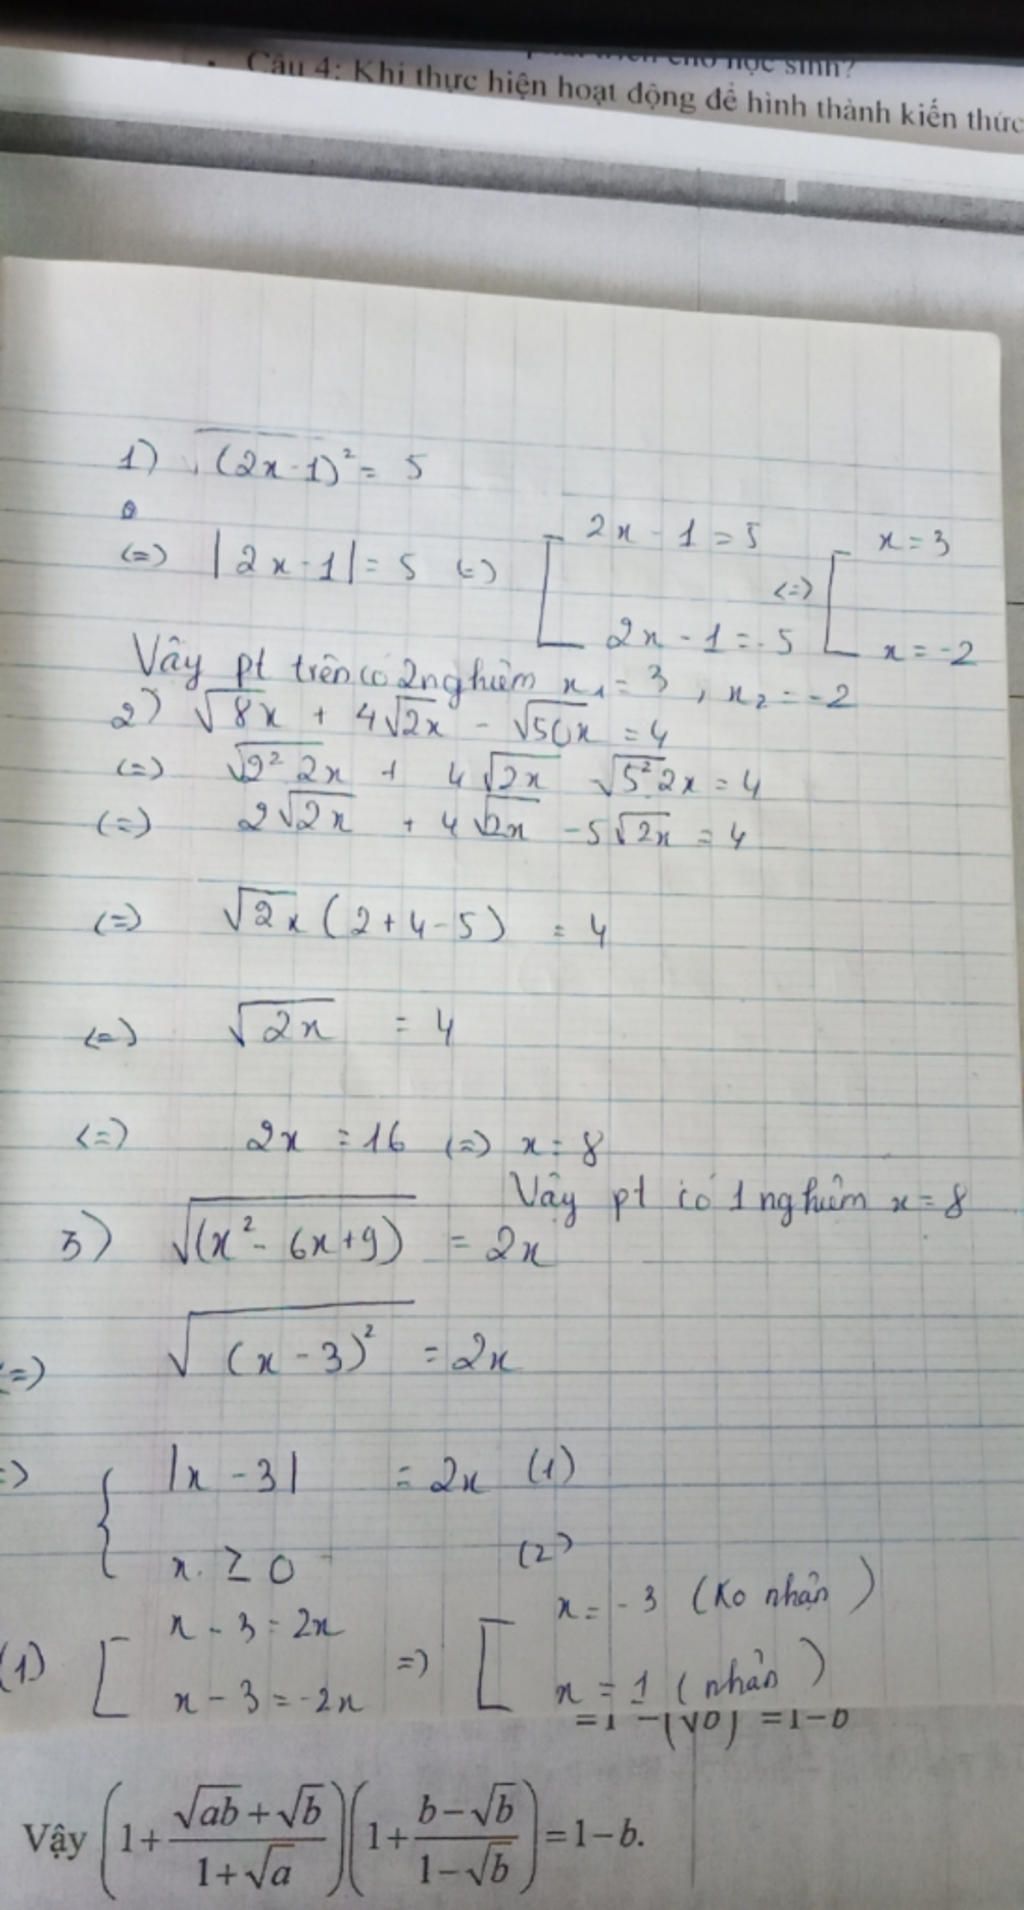 cho học sinh?
Câu 4: Khi thực hiện hoạt động để hình thành kiến thức
1) √(2x-1)² = 5
(=) |2x-1| = 5 (=) [ 2x - 1 = 5 (=) [ x = 3
2x - 1 = -5 x = -2
Vậy pt trên có 2 nghiệm x₁ = 3, x₂ = -2
2) √8x + 4√2x - √50x = 4
(=) √2² 2x + 4√2x √5² 2x = 4
(=) 2√2x + 4√2x - 5√2x = 4
(=) √2x (2+4-5) = 4
(=) √2x = 4
(=) 2x = 16 (=) x = 8
Vậy pt có 1 nghiệm x = 8
3) √(x² - 6x+9) = 2x
(=) √(x-3)² = 2x
=) { |x - 3| = 2x (1)
x ≥ 0 (2)
(1) [ x - 3 = 2x =) [ x = -3 (Ko nhận)
x - 3 = -2x x = 1 (nhận)
=1-(√b) =1-b
Vậy (1+ (√ab+√b)/(1+√a))(1+ (b-√b)/(1-√b)) =1-b.